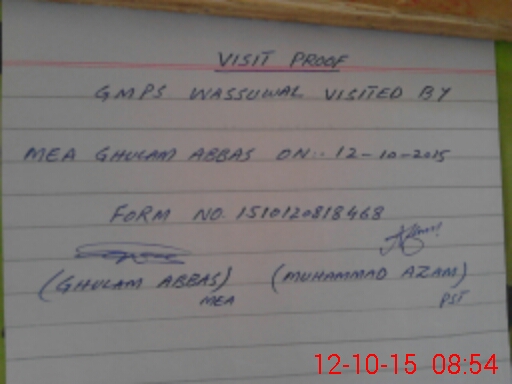 VISIT PROOF
GMPS WASSUWAL VISITED BY
MEA GHULAM ABBAS ON:- 12-10-2015
FORM NO. 1510120818468
(GHULAM ABBAS) (MUHAMMAD AZAM)
MEA PST
12-10-15 08:54